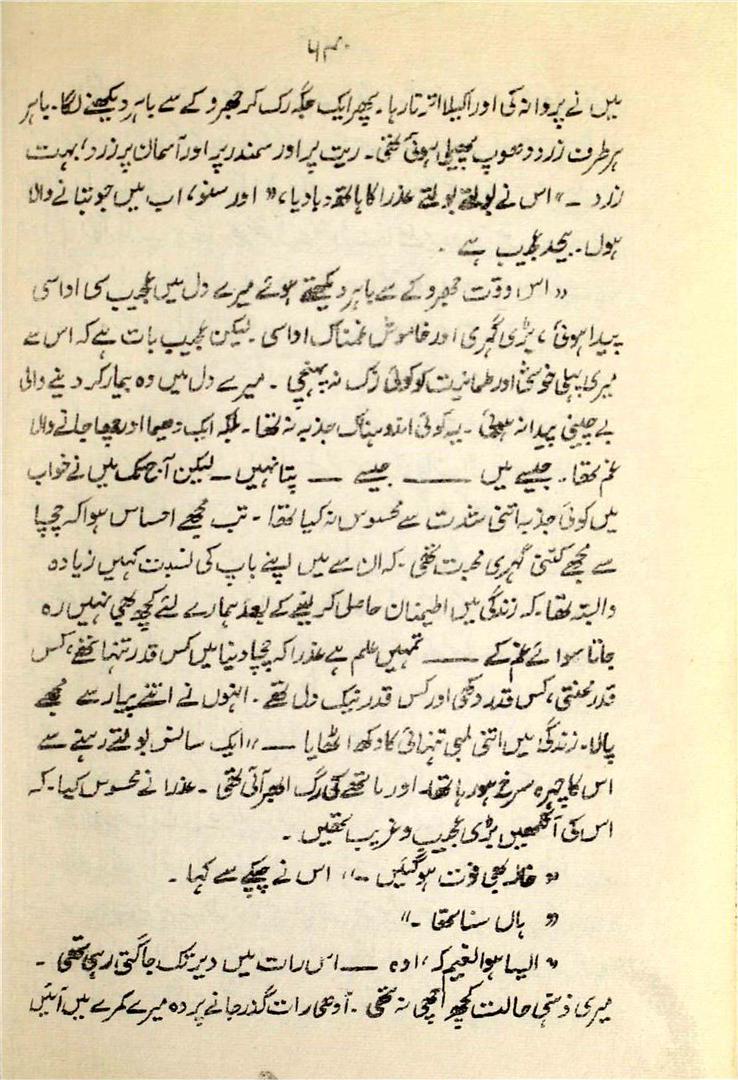 ۵۳۰
میں نے پروا نہ کی اور اکیلا اترتا رہا۔ پھر ایک جگہ رک کر جھروکے سے باہر دیکھنے لگا۔ باہر
ہر طرف زرد دھوپ پھیلی ہوئی تھی۔ ریت پر اور سمندر پر اور آسمان پر زرد، بہت
زرد ـــ" اس نے بولتے بولتے عذرا کا ہاتھ دبا دیا، "اور سنو، اب میں جو بتانے والا
ہوں۔ بیحد عجیب ہے۔
"اس وقت جھروکے سے باہر دیکھتے ہوئے میرے دل میں عجیب سی اداسی
پیدا ہوئی، بڑی گہری اور خاموش غمناک اداسی۔ لیکن عجیب بات ہے کہ اس سے
میری پہلی خوشی اور طمانیت کو کوئی زک نہ پہنچی۔ میرے دل میں وہ بیمار کر دینے والی
بے چینی پیدا نہ ہوئی۔ یہ کوئی اندوہناک جذبہ نہ تھا۔ بلکہ ایک دھیما اور چھا جانے والا
غم تھا۔ جیسے میں ـــــ جیسے ـــ پتا نہیں ـــ لیکن آج تک میں نے خواب
میں کوئی جذبہ اتنی شدت سے محسوس نہ کیا تھا۔ تب مجھے احساس ہوا کہ چچا
سے مجھے کتنی گہری محبت تھی۔ کہ ان سے میں اپنے باپ کی نسبت کہیں زیادہ
وابستہ تھا۔ کہ زندگی میں اطمینان حاصل کر لینے کے بعد ہمارے لئے کچھ بھی نہیں رہ
جاتا سوائے غم کے ـــــ تمہیں علم ہے عذرا کہ چچا دنیا میں کس قدر تنہا تھے، کس
قدر محنتی، کس قدر دکھی اور کس قدر نیک دل تھے۔ انہوں نے اتنے پیار سے مجھے
پالا۔ زندگی میں اتنی لمبی تنہائی کا دکھ اٹھایا ـــ" ایک سانس بولتے رہنے سے
اس کا چہرہ سرخ ہو رہا تھا۔ اور ماتھے کی رگ ابھر آئی تھی۔ عذرا نے محسوس کیا۔ کہ
اس کی آنکھیں بڑی عجیب و غریب تھیں۔
"خالہ بھی فوت ہو گئیں ـ" اس نے چپکے سے کہا۔
"ہاں سنا تھا ـ"
"ایسا ہوا نعیم کہ، اوہ ـــ اس رات میں دیر تک جاگتی رہی تھی۔
میری ذہنی حالت کچھ اچھی نہ تھی۔ آدھی رات گذر جانے پر وہ میرے کمرے میں آئیں